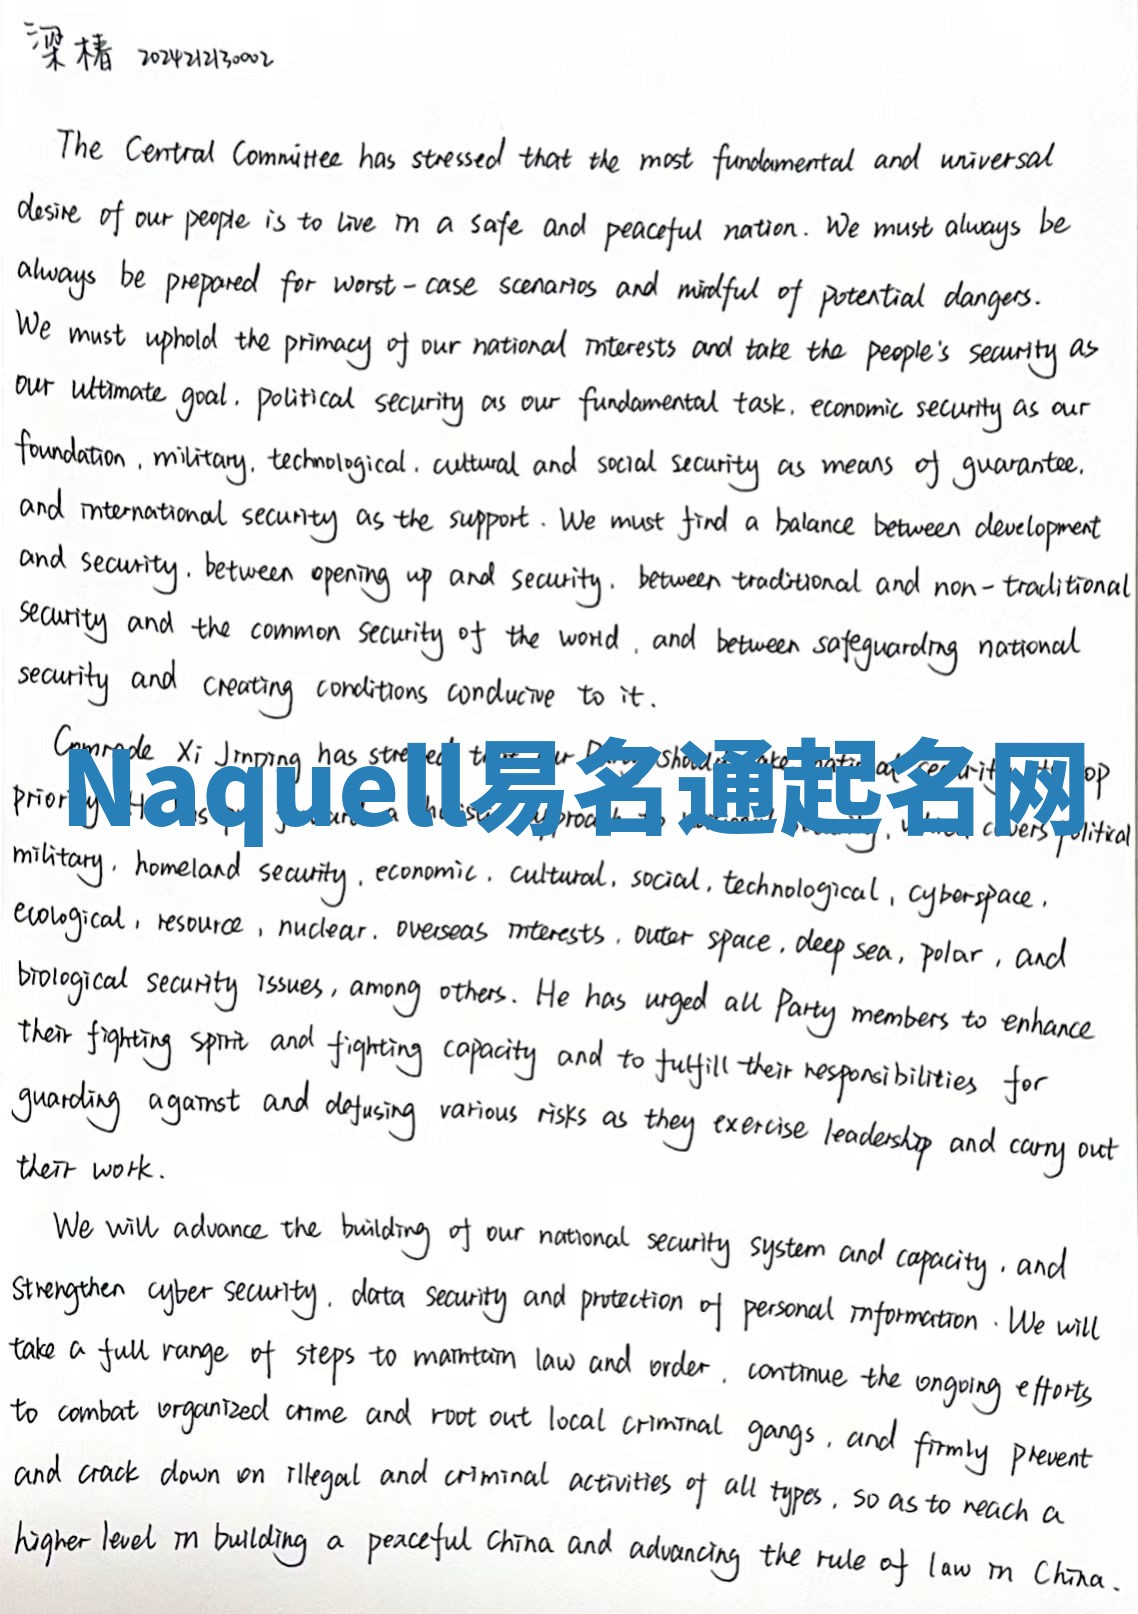 梁椿 2024212130002
The Central Committee has stressed that the most fundamental and universal
desire of our people is to live in a safe and peaceful nation. We must always be
always be prepared for worst-case scenarios and mindful of potential dangers.
We must uphold the primacy of our national interests and take the people's security as
our ultimate goal, political security as our fundamental task, economic security as our
foundation, military, technological, cultural and social security as means of guarantee,
and international security as the support. We must find a balance between development
and security, between opening up and security, between traditional and non-traditional
security and the common security of the world, and between safeguarding national
security and creating conditions conducive to it.
Comrade Xi Jinping has stressed
Naquell易名通起名网
priority covers political
military, homeland security, economic, cultural, social, technological, cyberspace,
ecological, resource, nuclear, overseas interests, outer space, deep sea, polar, and
biological security issues, among others. He has urged all Party members to enhance
their fighting spirit and fighting capacity and to fulfill their responsibilities for
guarding against and defusing various risks as they exercise leadership and carry out
their work.
We will advance the building of our national security system and capacity, and
strengthen cyber security, data security and protection of personal information. We will
take a full range of steps to maintain law and order, continue the ongoing efforts
to combat organized crime and root out local criminal gangs, and firmly prevent
and crack down on illegal and criminal activities of all types, so as to reach a
higher level in building a peaceful China and advancing the rule of law in China.